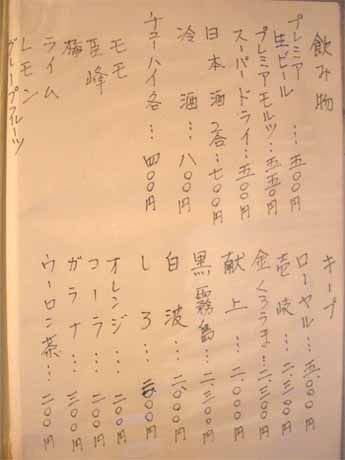 飲み物
プレミア
生ビール…五五〇円
プレミアモルツ…五五〇円
スーパードライ…五〇〇円
日本酒2合…七〇〇円
冷酒…八〇〇円
チューハイ各…四〇〇円
モモ
巨峰
梅
ライム
レモン
グレープフルーツ
キープ
ローヤル…五、〇〇〇円
壱岐…二、三〇〇円
金くろうま…二、三〇〇円
献上…二、〇〇〇円
黒霧島…二、三〇〇円
白波…二、〇〇〇円
しろ…二〇〇〇円
オレンジ…二〇〇円
コーラ…二〇〇円
ガラナ…三〇〇円
ウーロン茶…二〇〇円